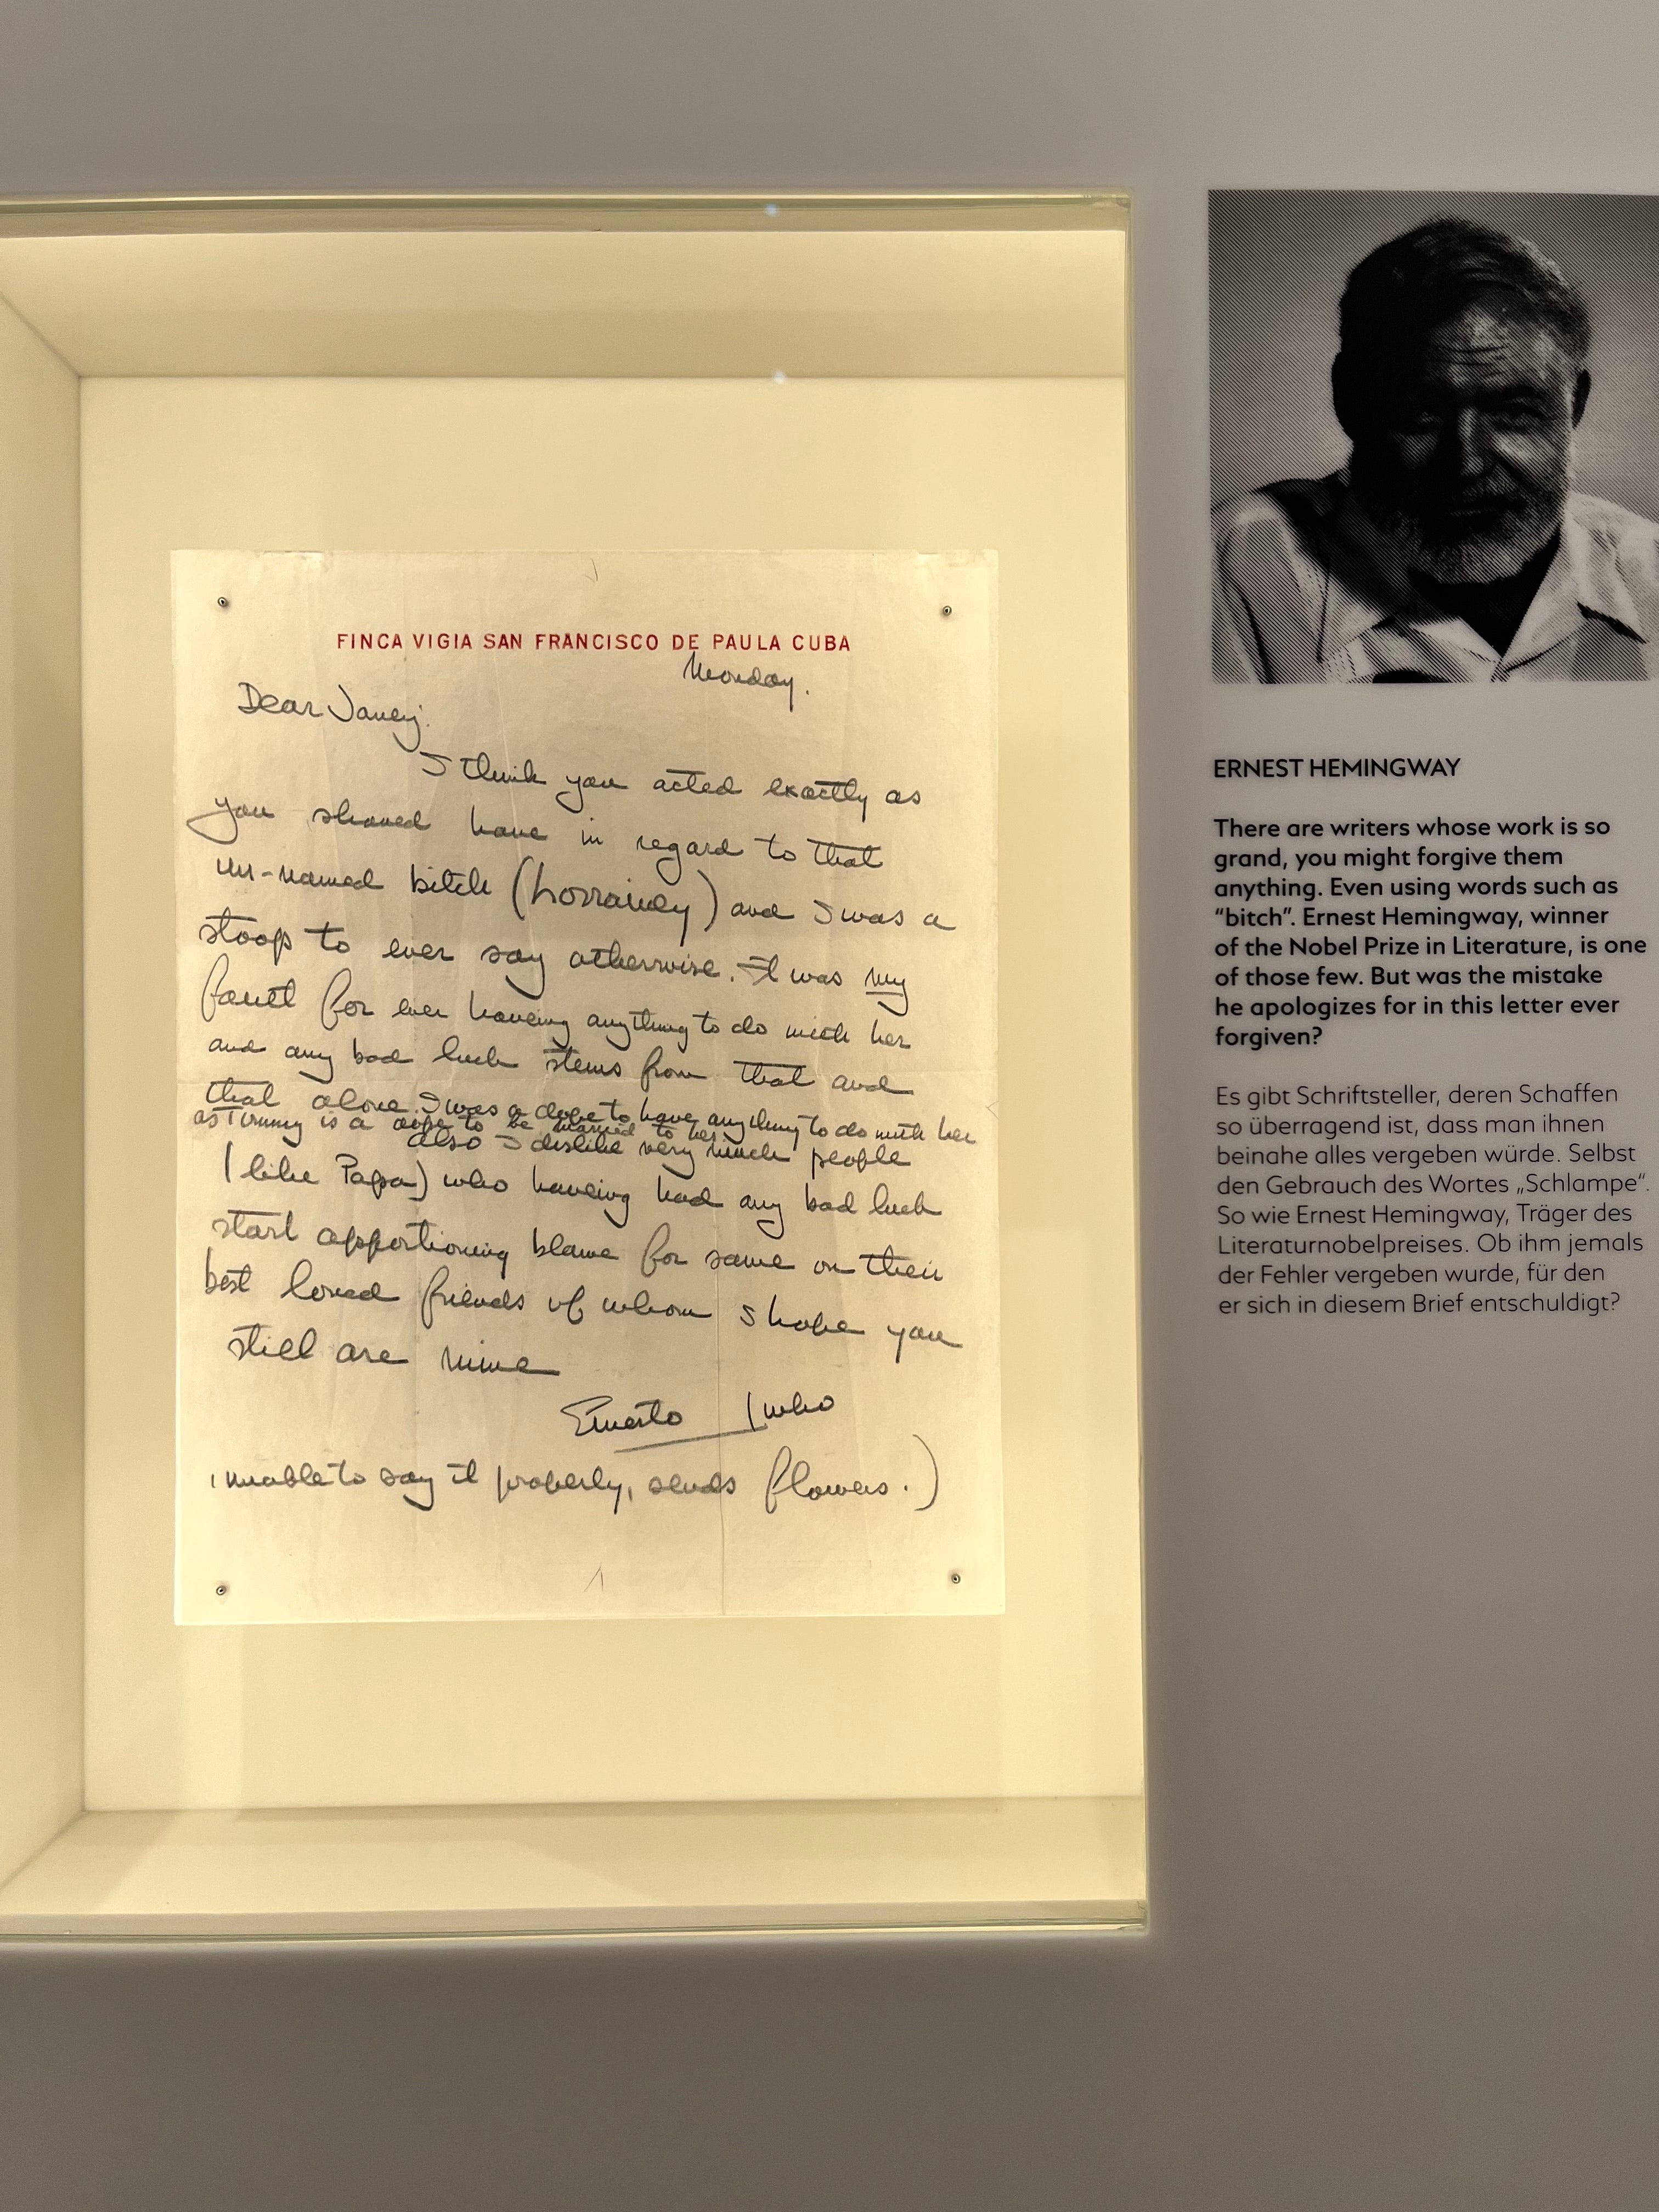 FINCA VIGIA SAN FRANCISCO DE PAULA CUBA
Monday.
Dear Janey:
I think you acted exactly as
you should have in regard to that
un-named bitch (Lorrainey) and I was a
stoop to ever say otherwise. It was my
fault for ever haveing anything to do with her
and any bad luck stems from that and
that alone. I was a dope to have anything to do with her
as Timmy is a dope to be married to her
also I dislike very much people
(like Papa) who haveing had any bad luck
start apportioning blame for same on their
best loved friends of whom I hope you
still are mine
Ernesto (who
unable to say it properly, sends flowers.)
ERNEST HEMINGWAY
There are writers whose work is so
grand, you might forgive them
anything. Even using words such as
“bitch”. Ernest Hemingway, winner
of the Nobel Prize in Literature, is one
of those few. But was the mistake
he apologizes for in this letter ever
forgiven?
Es gibt Schriftsteller, deren Schaffen
so überragend ist, dass man ihnen
beinahe alles vergeben würde. Selbst
den Gebrauch des Wortes „Schlampe“.
So wie Ernest Hemingway, Träger des
Literaturnobelpreises. Ob ihm jemals
der Fehler vergeben wurde, für den
er sich in diesem Brief entschuldigt?